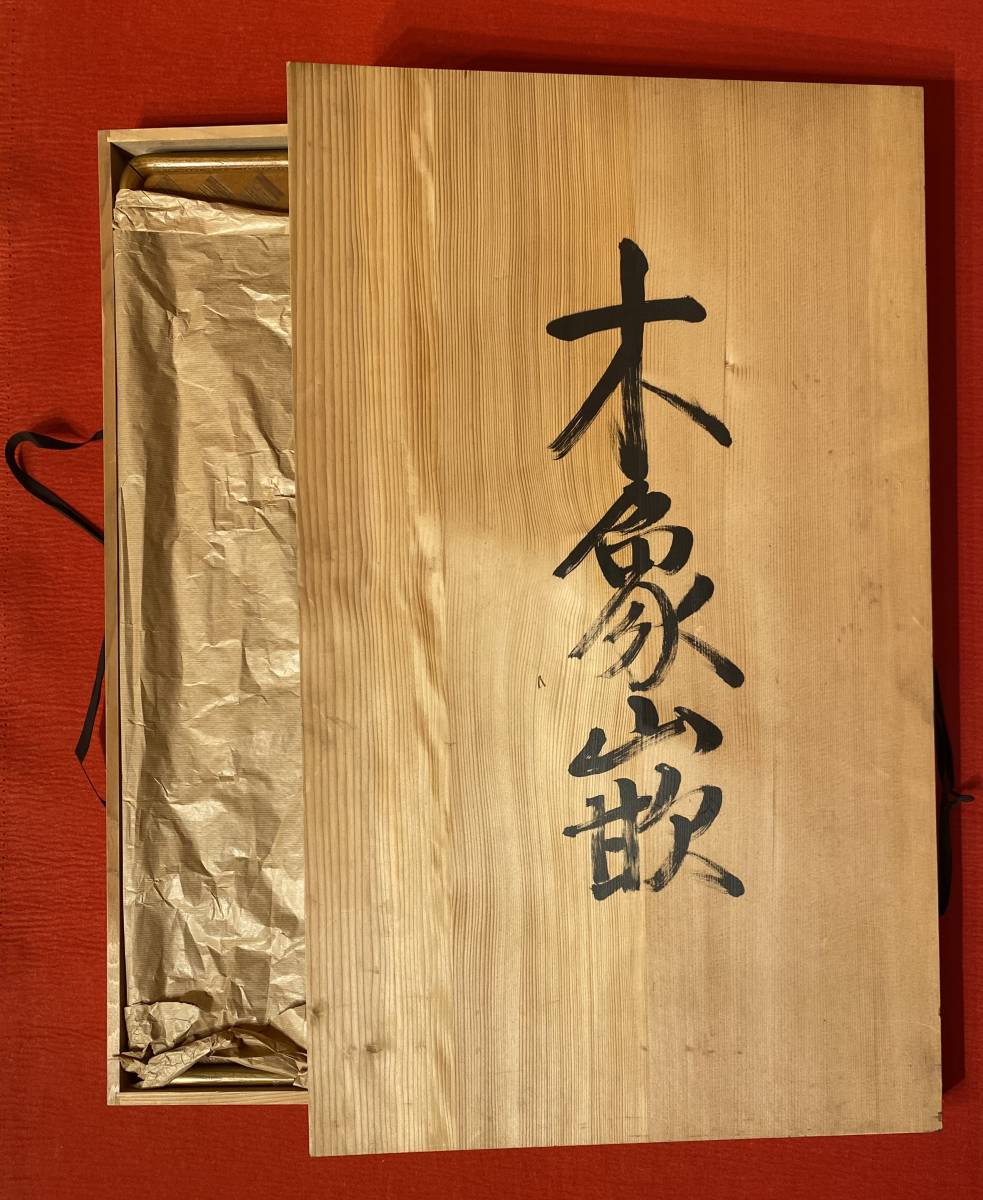 木象嵌